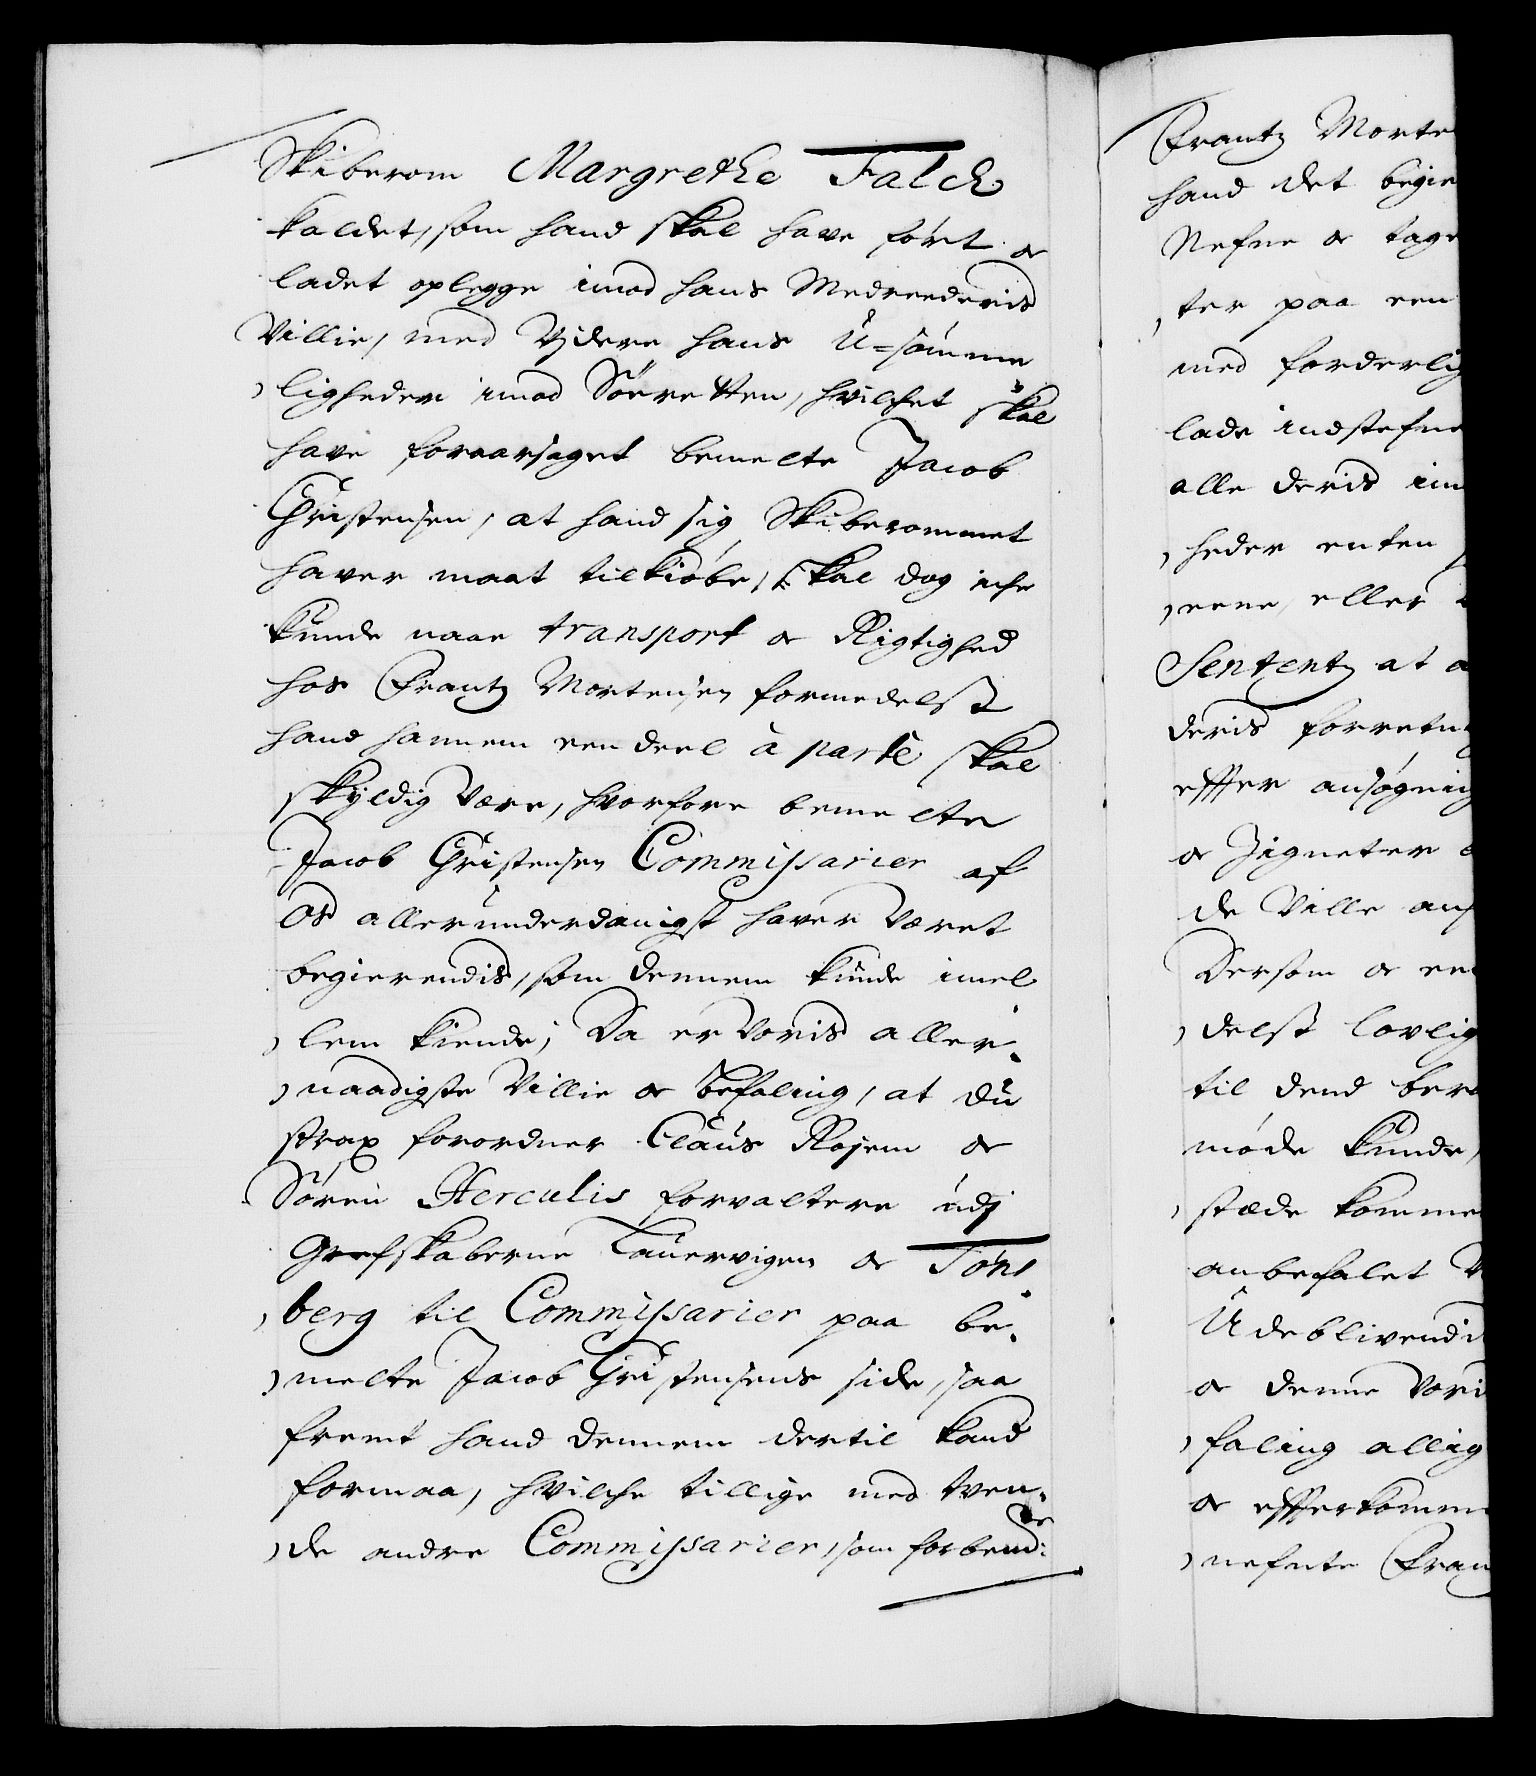 Skiberom Margrethe Falck
kaldet, som hand skal have ført oc
ladet oplegge imod hans Medreederis
Villie, med Videre hans U=sømme
ligheder imod Søeretten, hvilchet skal
have foraarsaget bemelte Jacob
Christensen, at hand sig Skiberommet
haver maat tilkiøbe, skal dog iche
kunde naae transport oc Rigtighed
hos Frantz Mortensen formedelst
hand hannem een deel à parte skal
skyldig være, hvorfore bemelte
Jacob Christensen Commissarier af
Os allerunderdanigst haver været
begierendis, som dennem kunde imel
lem kiende; Da er Voris aller-
naadigste Villie oc befaling, at du
strax forordner Claus Røyem oc
Søren Herculis forvaltere udj
Grefskaberne Lauervigen oc Tøns
berg til Commissarier paa be-
melte Jacob Christensens side, saa
fremt hand dennem dertil kand
formaa, hvilche tillige med tven-
de andre Commissarier, som forbemte
Frantz Morte
hand det begie
Nefne oc tage
ter paa een
med forderlig
lade indstefne
alle deris im
heder enten
eene eller
Sententz at a
deris forretn
effter ansøgnig
oc Zigneter
de Ville ans
Dersom oc en
delst lovlig
til dend bera
møde kunde,
stæde komme
anbefalet
Udeblivendi
oc denne Vori
faling allig
oc effterkomm
nefnte Fran